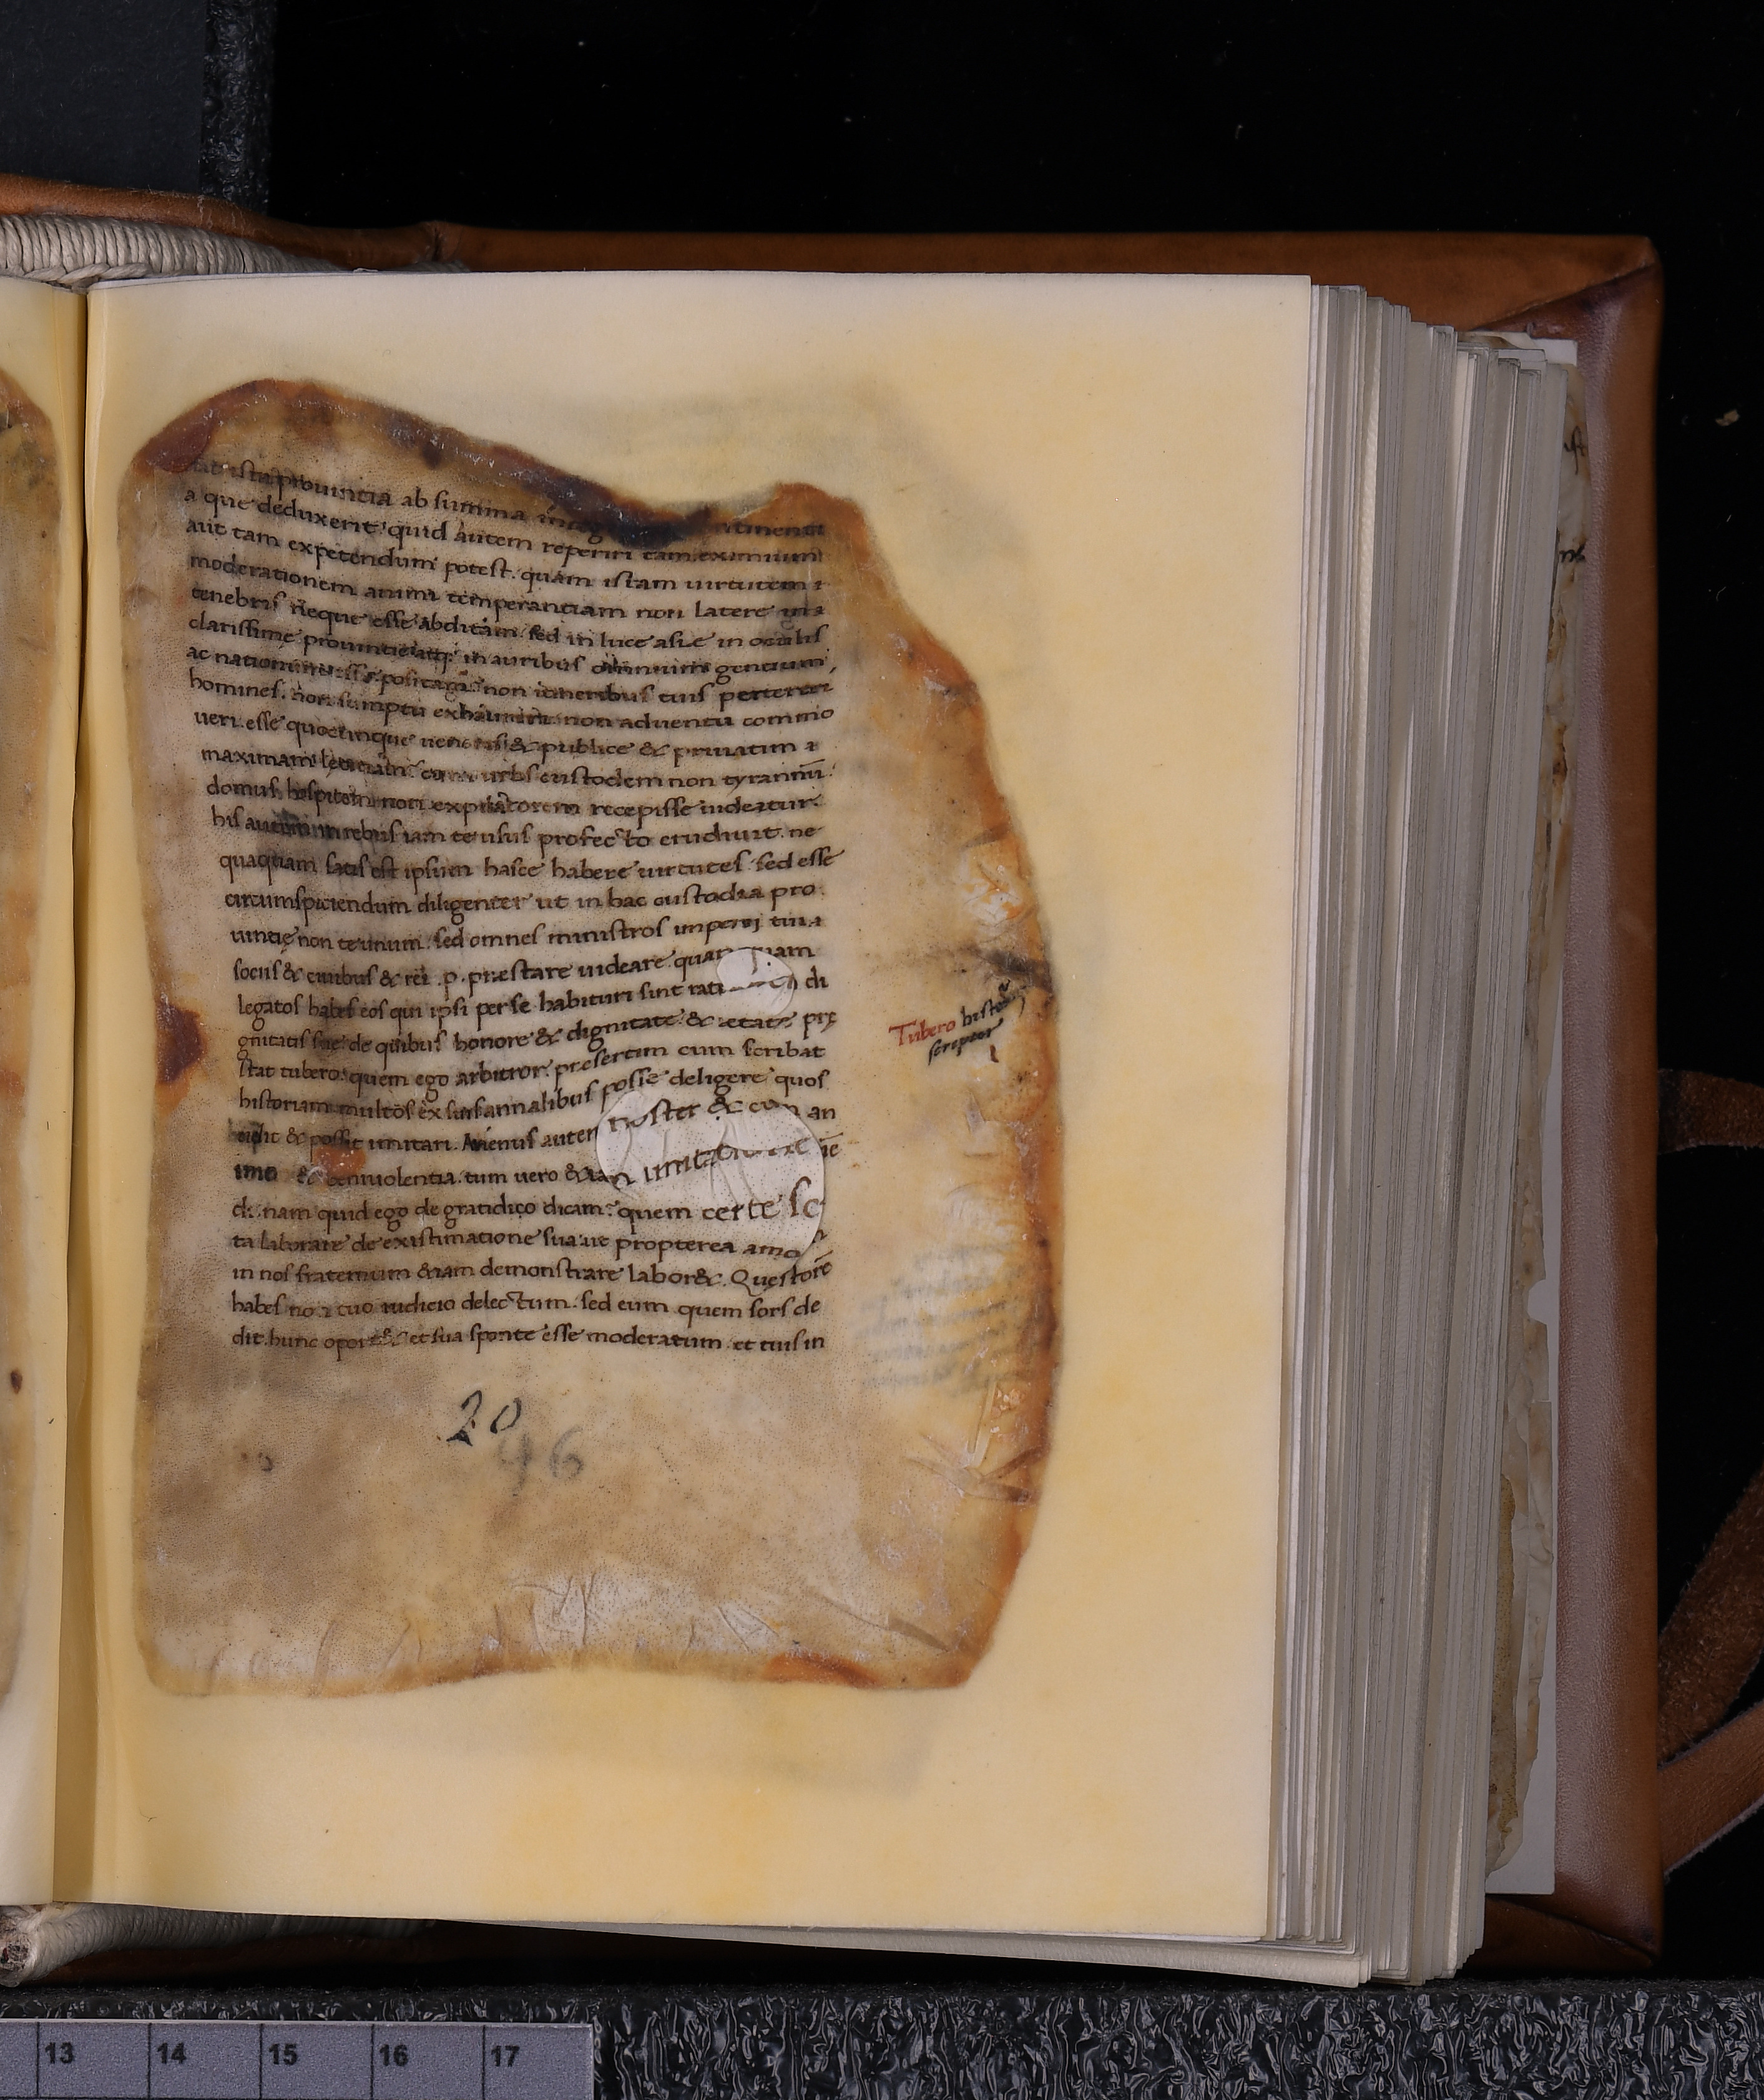 ista prouintia ab summa
a que deduxerit. quid autem reperiri tam eximium
aut tam expetendum potest. quam istam uirtutem
moderationem animi temperantiam non latere in
tenebris neque esse abditam. sed in luce asie in oculis
clarissime prouintie atq; in auribus omnium gentium
ac nationum esse positam. non itineribus tuis perterreri
homines. non sumptu exhauriri. non aduentu commo
ueri. esse quocunque ueneris & publice & priuatim
maximam letitiam. cum urbs custodem non tyrannū.
domus hospitem non expilatorem recepisse uideatur.
his autem in rebus iam te usus profecto erudiuit. ne
quaquam satis est ipsum hasce habere uirtutes. sed esse
circumspiciendum diligenter ut in hac custodia pro
uintię non te unum. sed omnes ministros imperii tui
sociis & ciuibus & rei .p. prestare uideare. quam
legatos habes eos qui ipsi per se habituri sint rati di
gnitatis sue. de quibus honore & dignitate & etate prę
stat tubero. quem ego arbitror. presertim cum scribat
historiam multos ex suis annalibus posse deligere quos
uelit & possit imitari. Alienus autem noster & cum an
imo & beniuolentia. tum uero & iam imitatione ...
di. nam quid ego de gratidico dicam? quem certe sc
ta laborare de existimatione sua. ut propterea amo
in nos fraternum & iam demonstrare labor&. Questorē
habes no tuo iudicio delectum. sed eum quem sors de
dit. hunc oport& et sua sponte esse moderatum. et tuis in
20
46
Tubero histo
scriptor
13 14 15 16 17